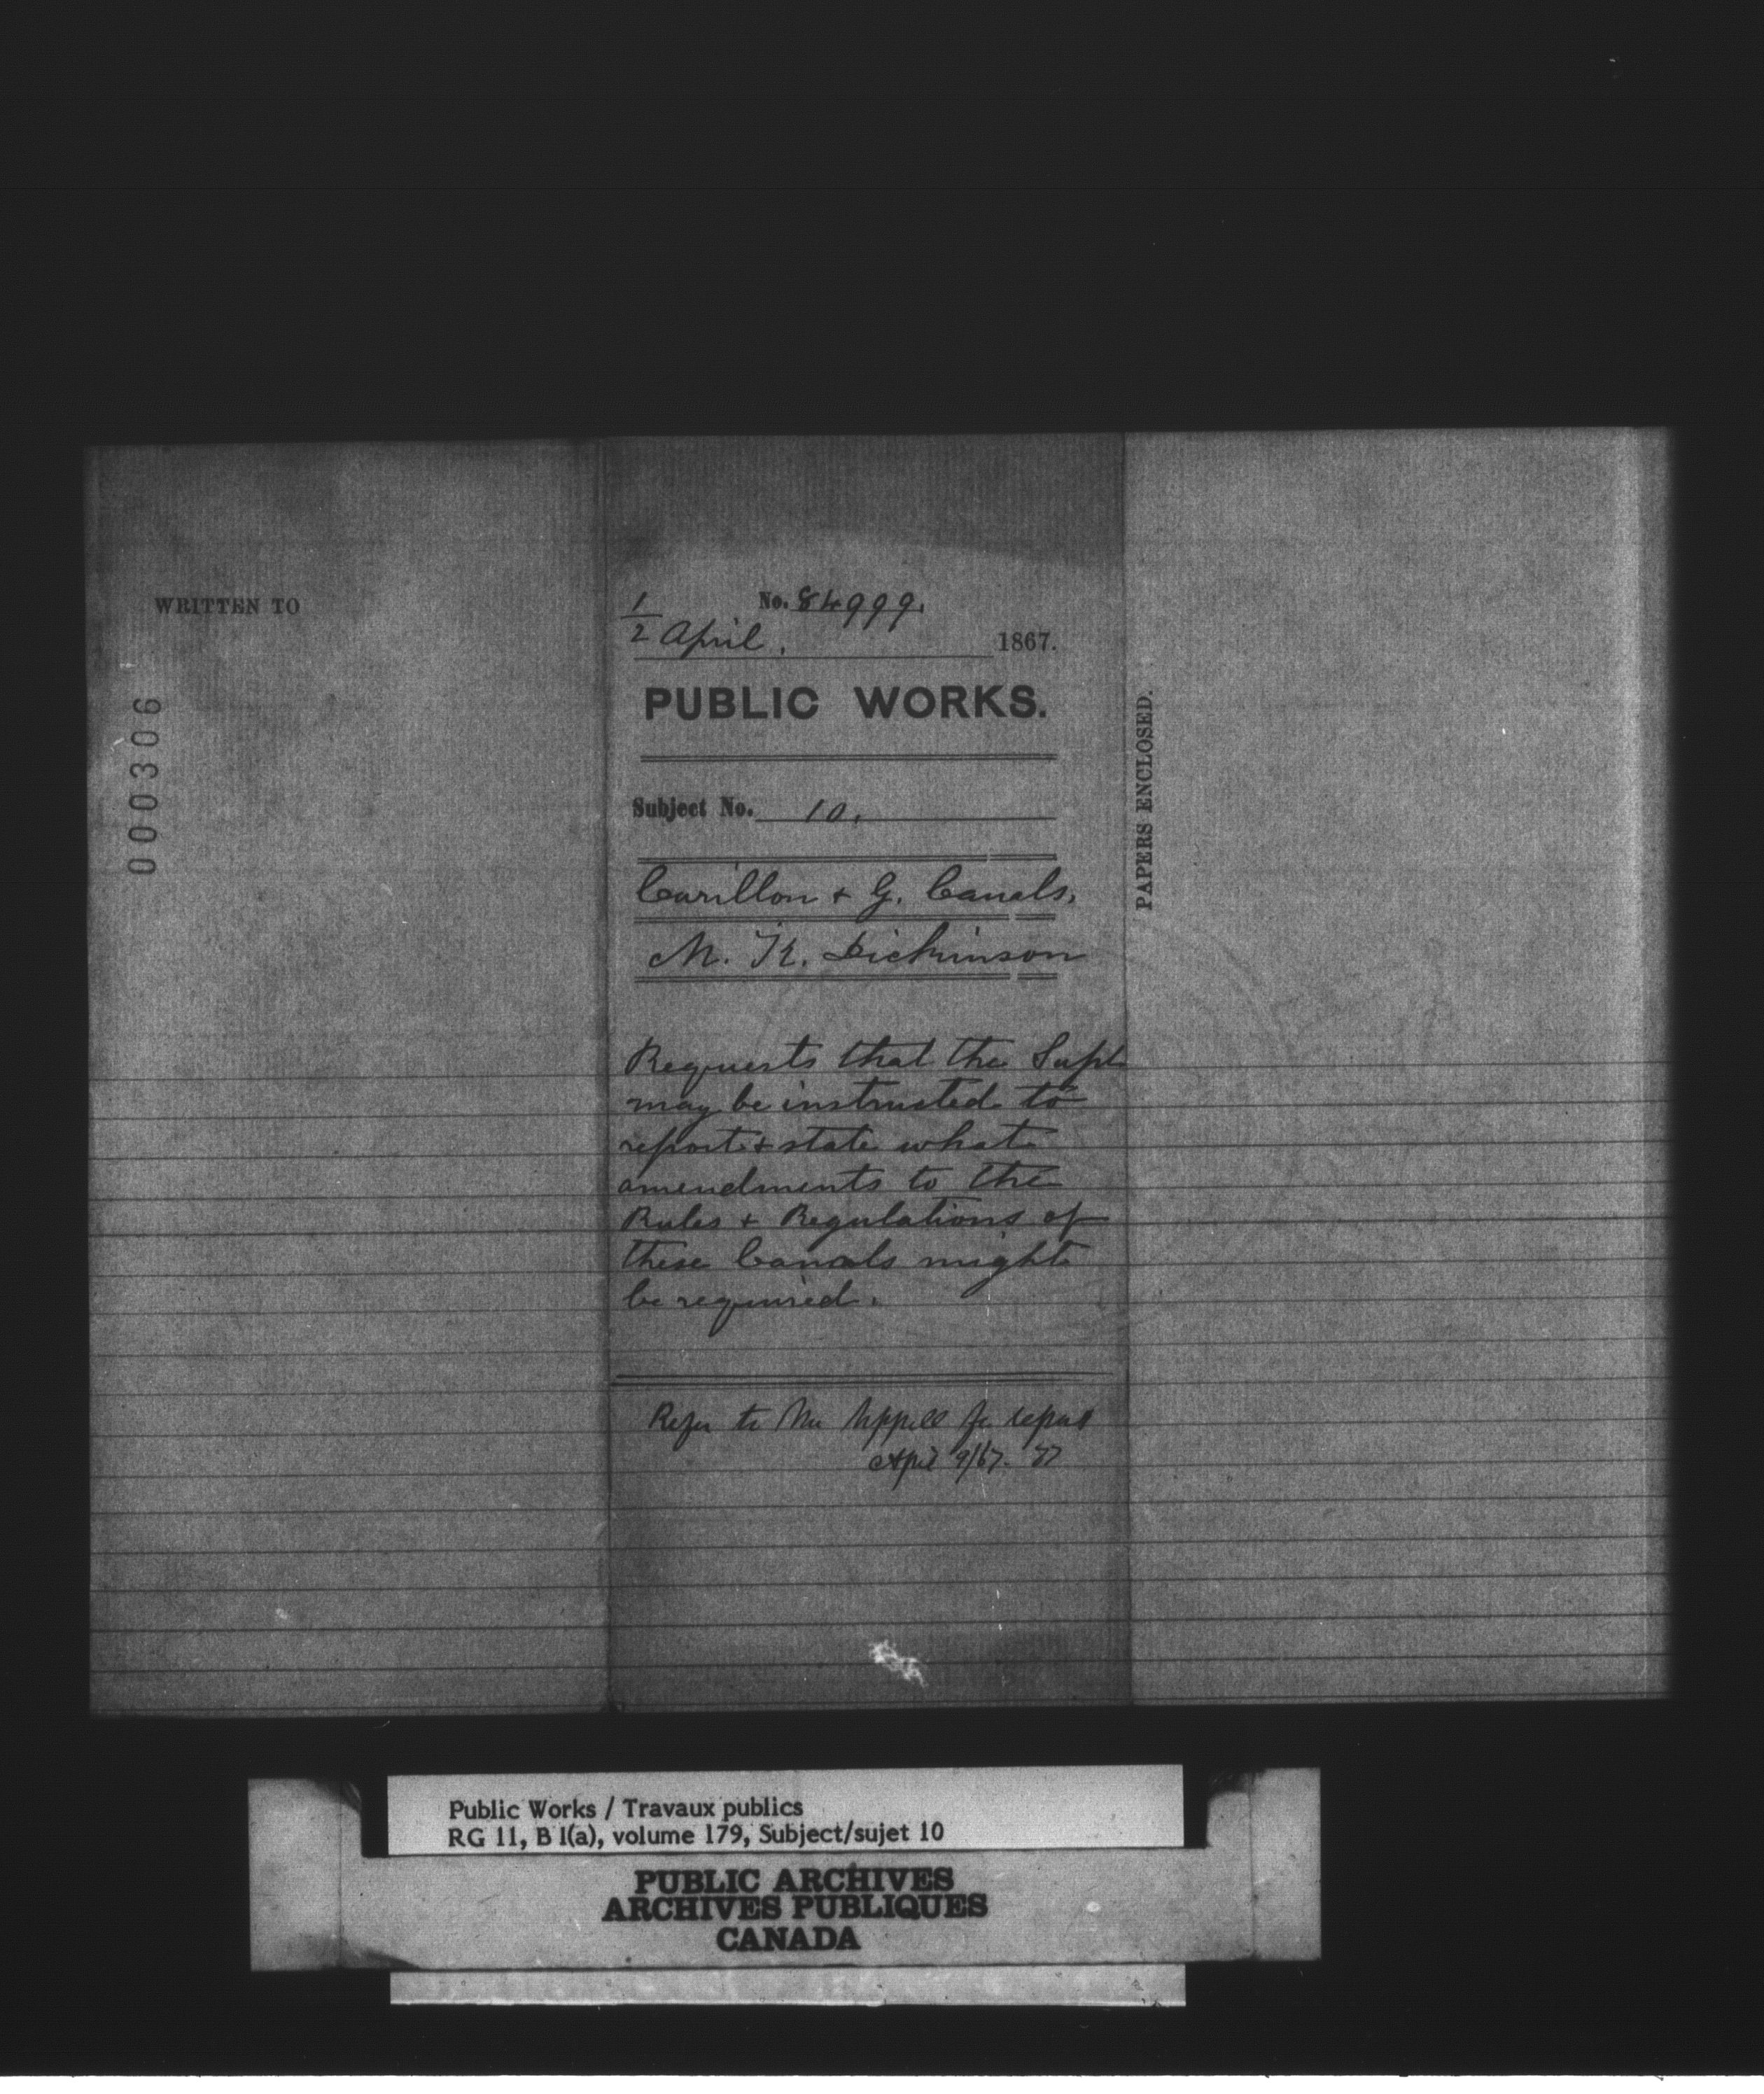 WRITTEN TO
000306
1/2 April. No. 84999. 1867.
PUBLIC WORKS.
Subject No. 10.
Carillon + G. Canals.
M. K. Dickinson
Requests that the Supt
may be instructed to
report + state what
amendments to the
Rules + Regulations of
these Canals might
be required.
Refer to Mr for report
April 9/67.
PAPERS ENCLOSED.
Public Works / Travaux publics
RG 11, B 1(a), volume 179, Subject/sujet 10
PUBLIC ARCHIVES
ARCHIVES PUBLIQUES
CANADA